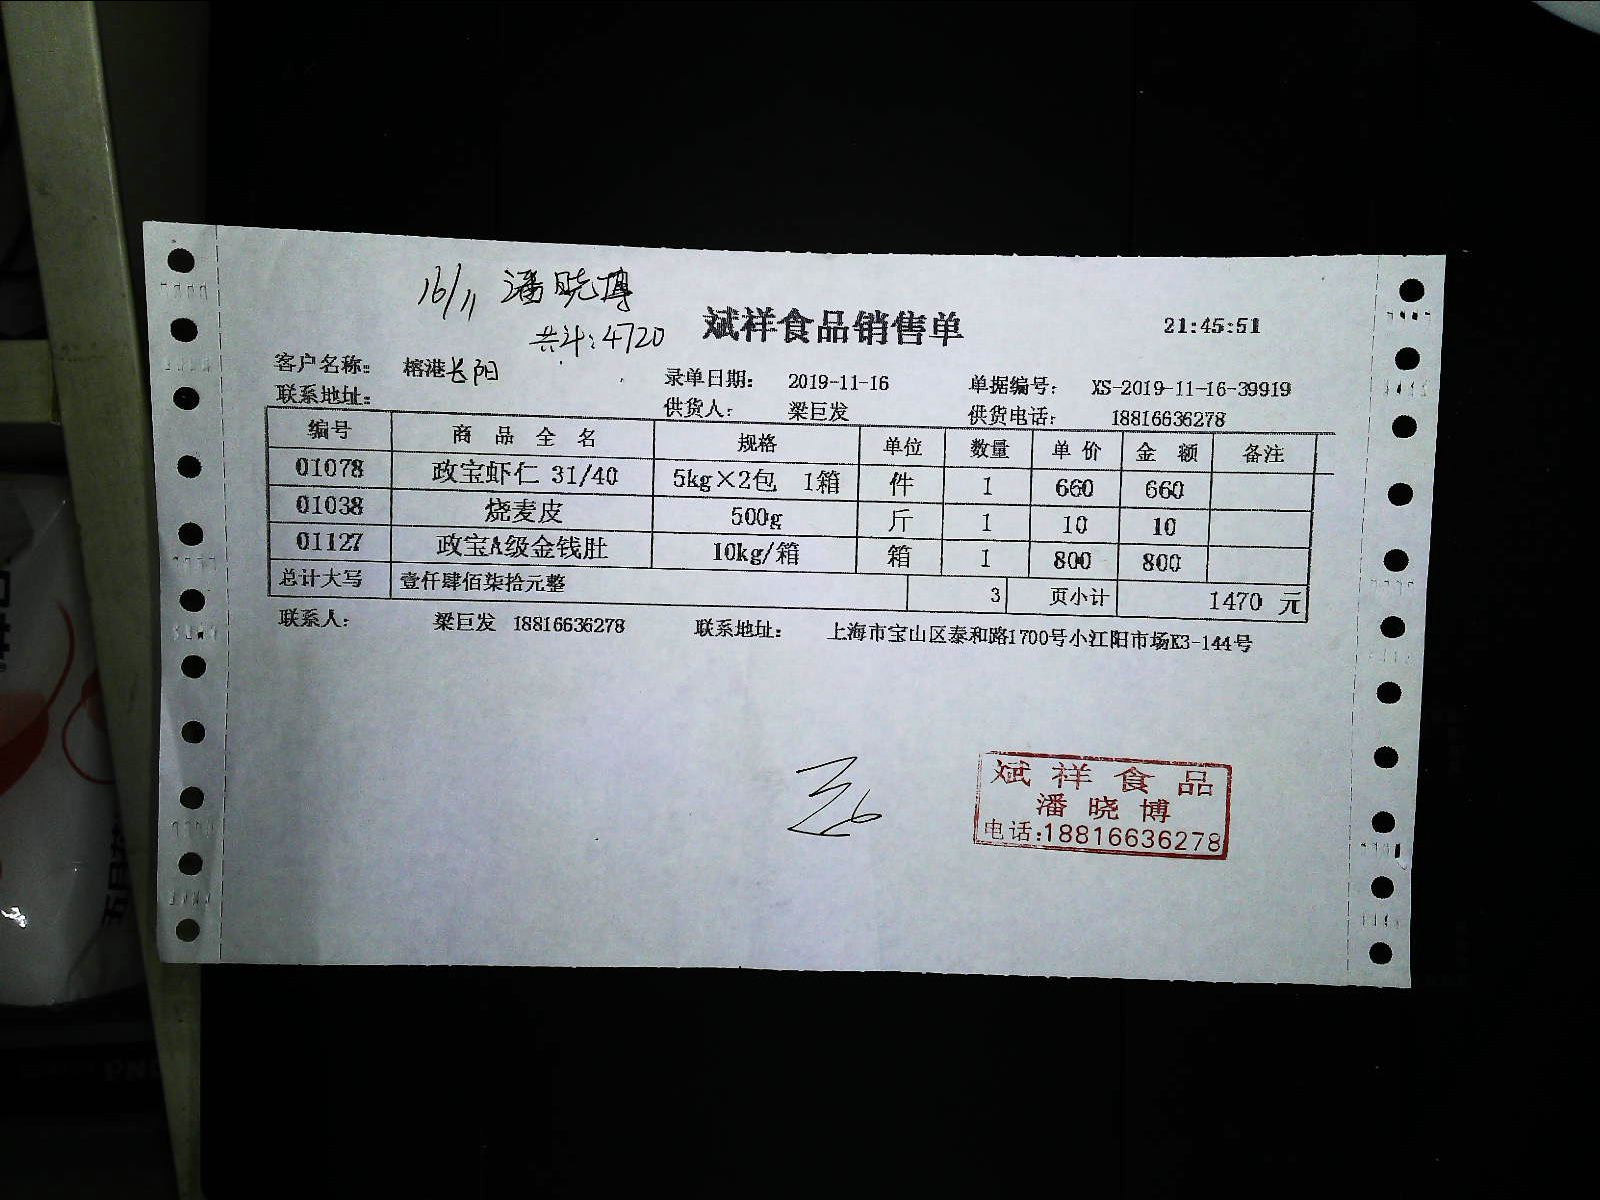 16/11 潘晓博
共计:4720
斌祥食品销售单
21:45:51
客户名称: 榕港长阳 录单日期: 2019-11-16 单据编号: XS-2019-11-16-39919
联系地址: 供货人: 梁巨发 供货电话: 18816636278
编号 商品全名 规格 单位 数量 单价 金额 备注
01078 政宝虾仁 31/40 5kg×2包 1箱 件 1 660 660
01038 烧麦皮 500g 斤 1 10 10
01127 政宝A级金钱肚 10kg/箱 箱 1 800 800
总计大写 壹仟肆佰柒拾元整 3 页小计 1470 元
联系人: 梁巨发 18816636278 联系地址: 上海市宝山区泰和路1700号小江阳市场K3-144号
斌祥食品
潘晓博
电话:18816636278